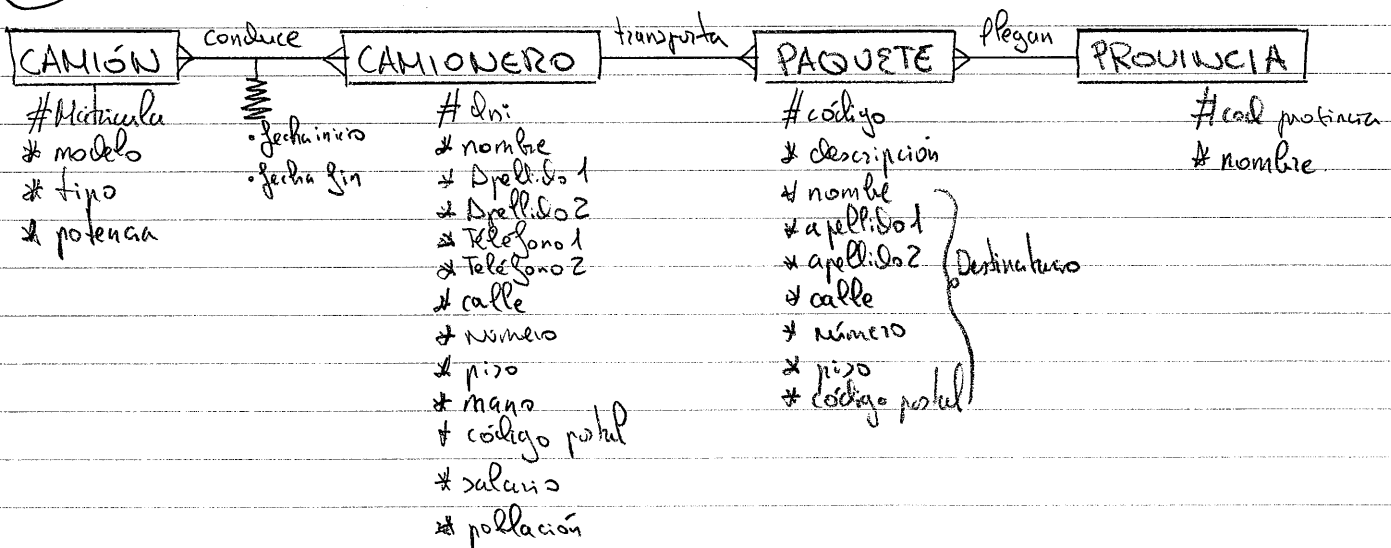 CAMIÓN
conduce
CAMIONERO
transporta
PAQUETE
llegan
PROVINCIA
#Matricula
* modelo
* tipo
* potencia
• fecha inicio
• fecha fin
# dni
* nombre
* Apellido 1
* Apellido 2
* Teléfono 1
* Teléfono 2
* calle
* número
* piso
* mano
* código postal
* salario
* población
# código
* descripción
* nombre
* apellido1
* apellido2
* calle
* número
* piso
* código postal
Destinatario
# cod provincia
* nombre